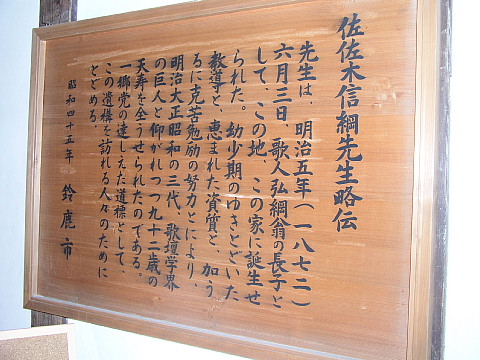 佐佐木信綱先生略伝
先生は、明治五年(一八七二)
六月三日、歌人弘綱翁の長子と
して、この地、この家に誕生せ
られた。幼少期のゆきとどいた
教導と、恵まれた資質と、加う
るに克苦勉励の努力とにより、
明治大正昭和の三代、歌壇学界
の巨人と仰がれつつ九十二歳の
天寿を全うせられたのである。
一郷党の達しえた道標として、
この遺構を訪れる人々のために
とどめる。
昭和四十五年 鈴鹿市